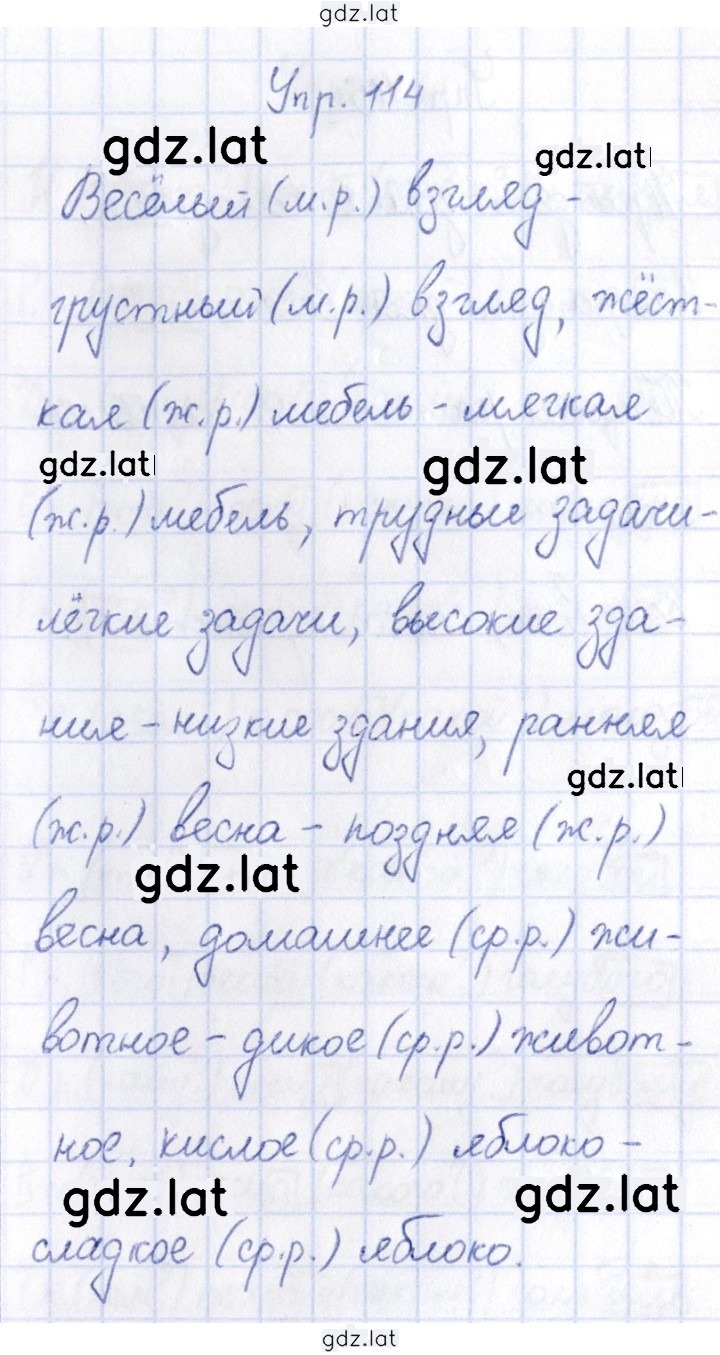 gdz.lat
Упр. 114
gdz.lat
gdz.lat
Весёлый (м.р.) взгляд -
грустный (м.р.) взгляд, жёст-
кая (ж.р.) мебель - мягкая
gdz.lat
gdz.lat
(ж.р.) мебель, трудные задачи -
лёгкие задачи, высокие зда-
ния - низкие здания, ранняя
gdz.lat
(ж.р.) весна - поздняя (ж.р.)
gdz.lat
весна, домашнее (ср.р.) жи-
вотное - дикое (ср.р.) живот-
ное, кислое (ср.р.) яблоко -
gdz.lat
gdz.lat
сладкое (ср.р.) яблоко.
gdz.lat